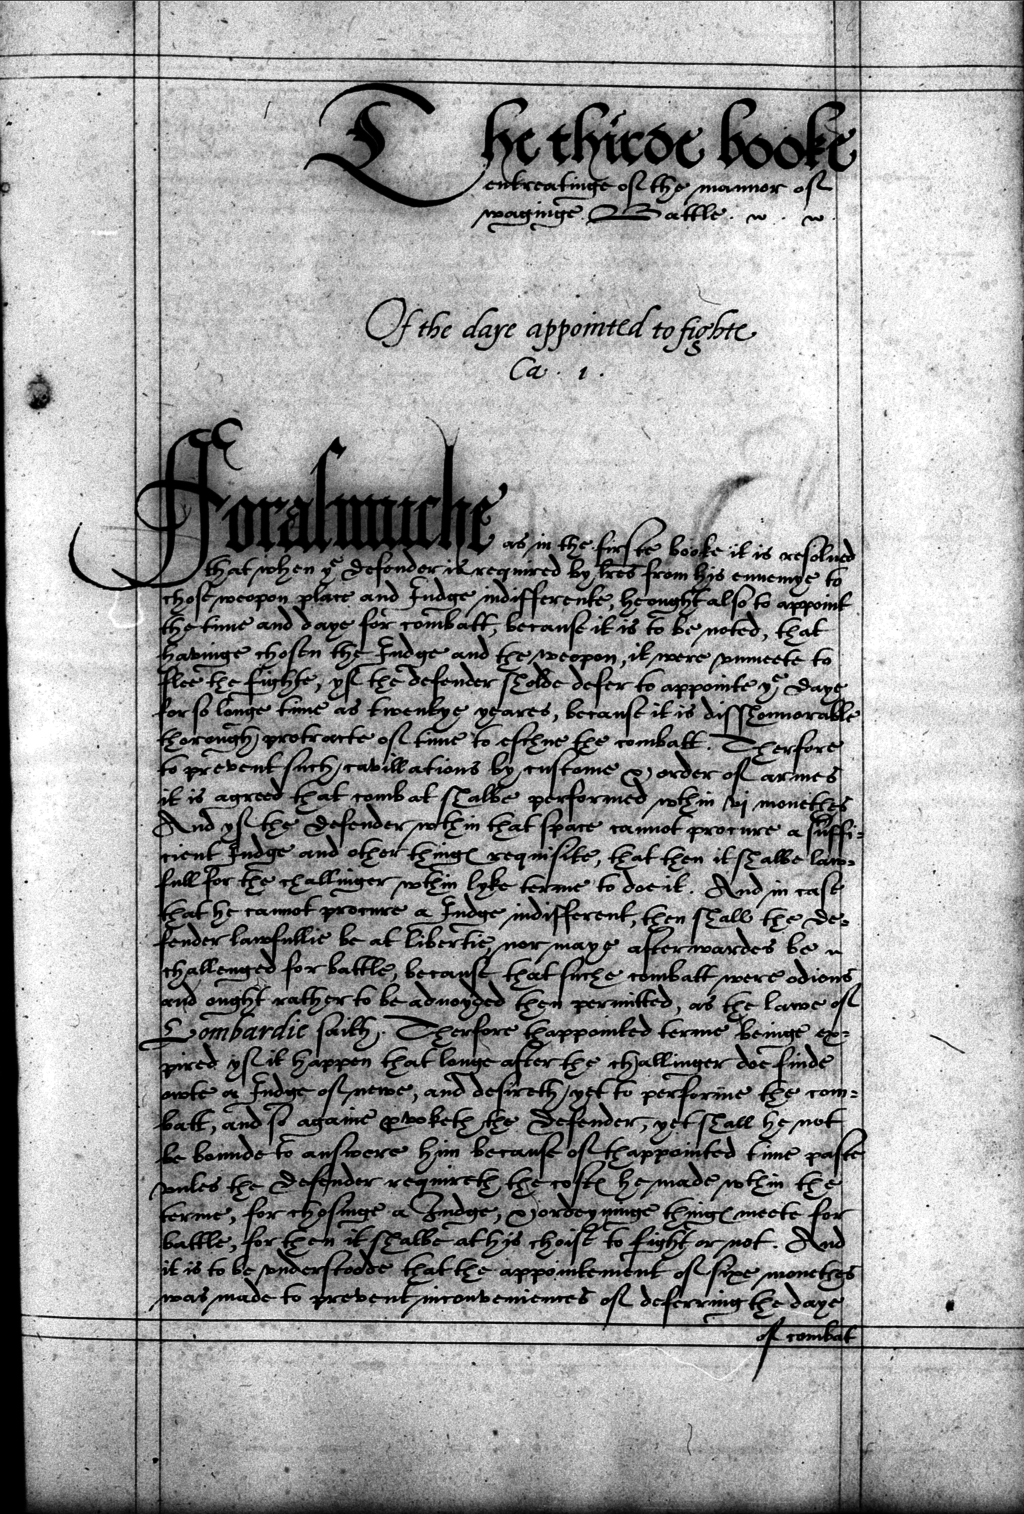 The thirde booke
entreatinge of the mannor of
waginge Battle.
Of the daye appointed to fighte
Ca. 1.
Foralsmuche as in the firste booke it is resolued
that when yᵉ defender is required by lres from his ennemye to
chose weopon place and Judge indifferente, he ought also to appoint
the time and daye for combatt, because it is to be noted, that
havinge chosen the Judge and the weopon, it were vnmeete to
flee the fighte, yf the defender sholde defer to appointe yᵉ daye
for so longe time as twentye yeares, because it is disshonnorable
thorough protracte of time to eschue the combatt. Therfore
to prevent such cavillations by custome & order of armes
it is agreed that combat shalbe performed wthin vj monethes
And yf the defender wthin that space cannot procure a suffi-
cient Judge and other things requisite, that then it shalbe law-
full for the challinger wthin lyke terme to doe it. And in case
that he cannot procure a Judge indifferent, then shall the de-
fender lawfullie be at libertie, nor maye afterwardes be
challenged for battle, because that suche combatt were odious
and ought rather to be advoyded then permitted, as the lawe of
Lombardie saith. Therfore thappointed terme beinge ex-
pired yf it happen that longe after the challinger doe finde
owte a Judge of newe, and desireth yet to performe the com-
batt, and so againe pvoketh the defender, yet shall he not
be bounde to answere him because of thappointed time paste
vnles the defender requireth the costs he made wthin the
terme, for chosinge a Judge, & ordeyninge things meete for
battle, for then it shalbe at his choise to fight or not. And
it is to be vnderstoode that the appointement of sixe monethes
was made to prevent inconveniences of deferring the daye
of combat